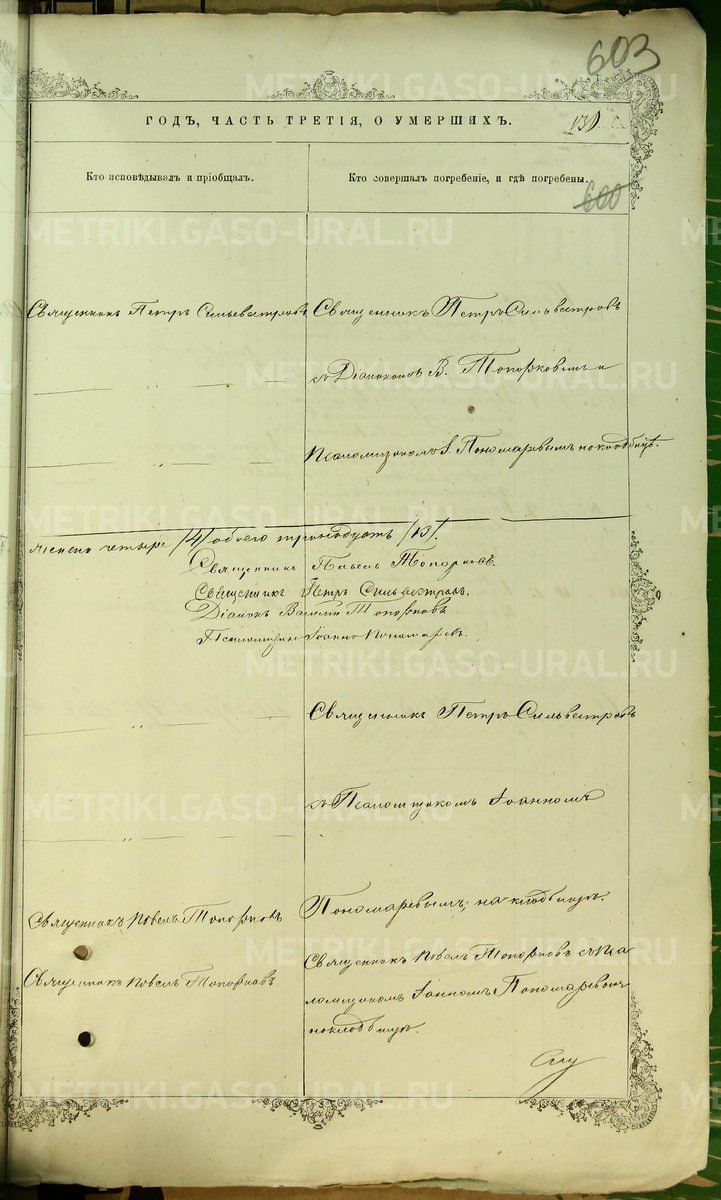 603
ГОДЪ, ЧАСТЬ ТРЕТІЯ, О УМЕРШИХЪ.
131
Кто исповѣдывалъ и пріобщалъ.
Кто совершалъ погребеніе, и гдѣ погребены.
600
Священникъ Петръ Сильвестровъ
Священникъ Петръ Сильвестровъ
съ Діакономъ В. Топорковымъ и
Псаломщикомъ І. Пономаревымъ на кладбищѣ.
женска четыре /4/ обоего тринадцать /13/.
Священникъ Павелъ Топорковъ.
Священникъ Петръ Сильвестровъ.
Діаконъ Василій Топорковъ
Псаломщикъ Іоаннъ Пономаревъ.
Священникъ Петръ Сильвестровъ
съ Псаломщикомъ Іоанномъ
Пономаревымъ, на кладбищѣ.
Священникъ Павелъ Топорковъ
Священникъ Павелъ Топорковъ съ Пса
ломщикомъ Іоанномъ Пономаревымъ
на кладбищѣ.
Священникъ Павелъ Топорковъ
METRIKI.GASO-URAL.RU